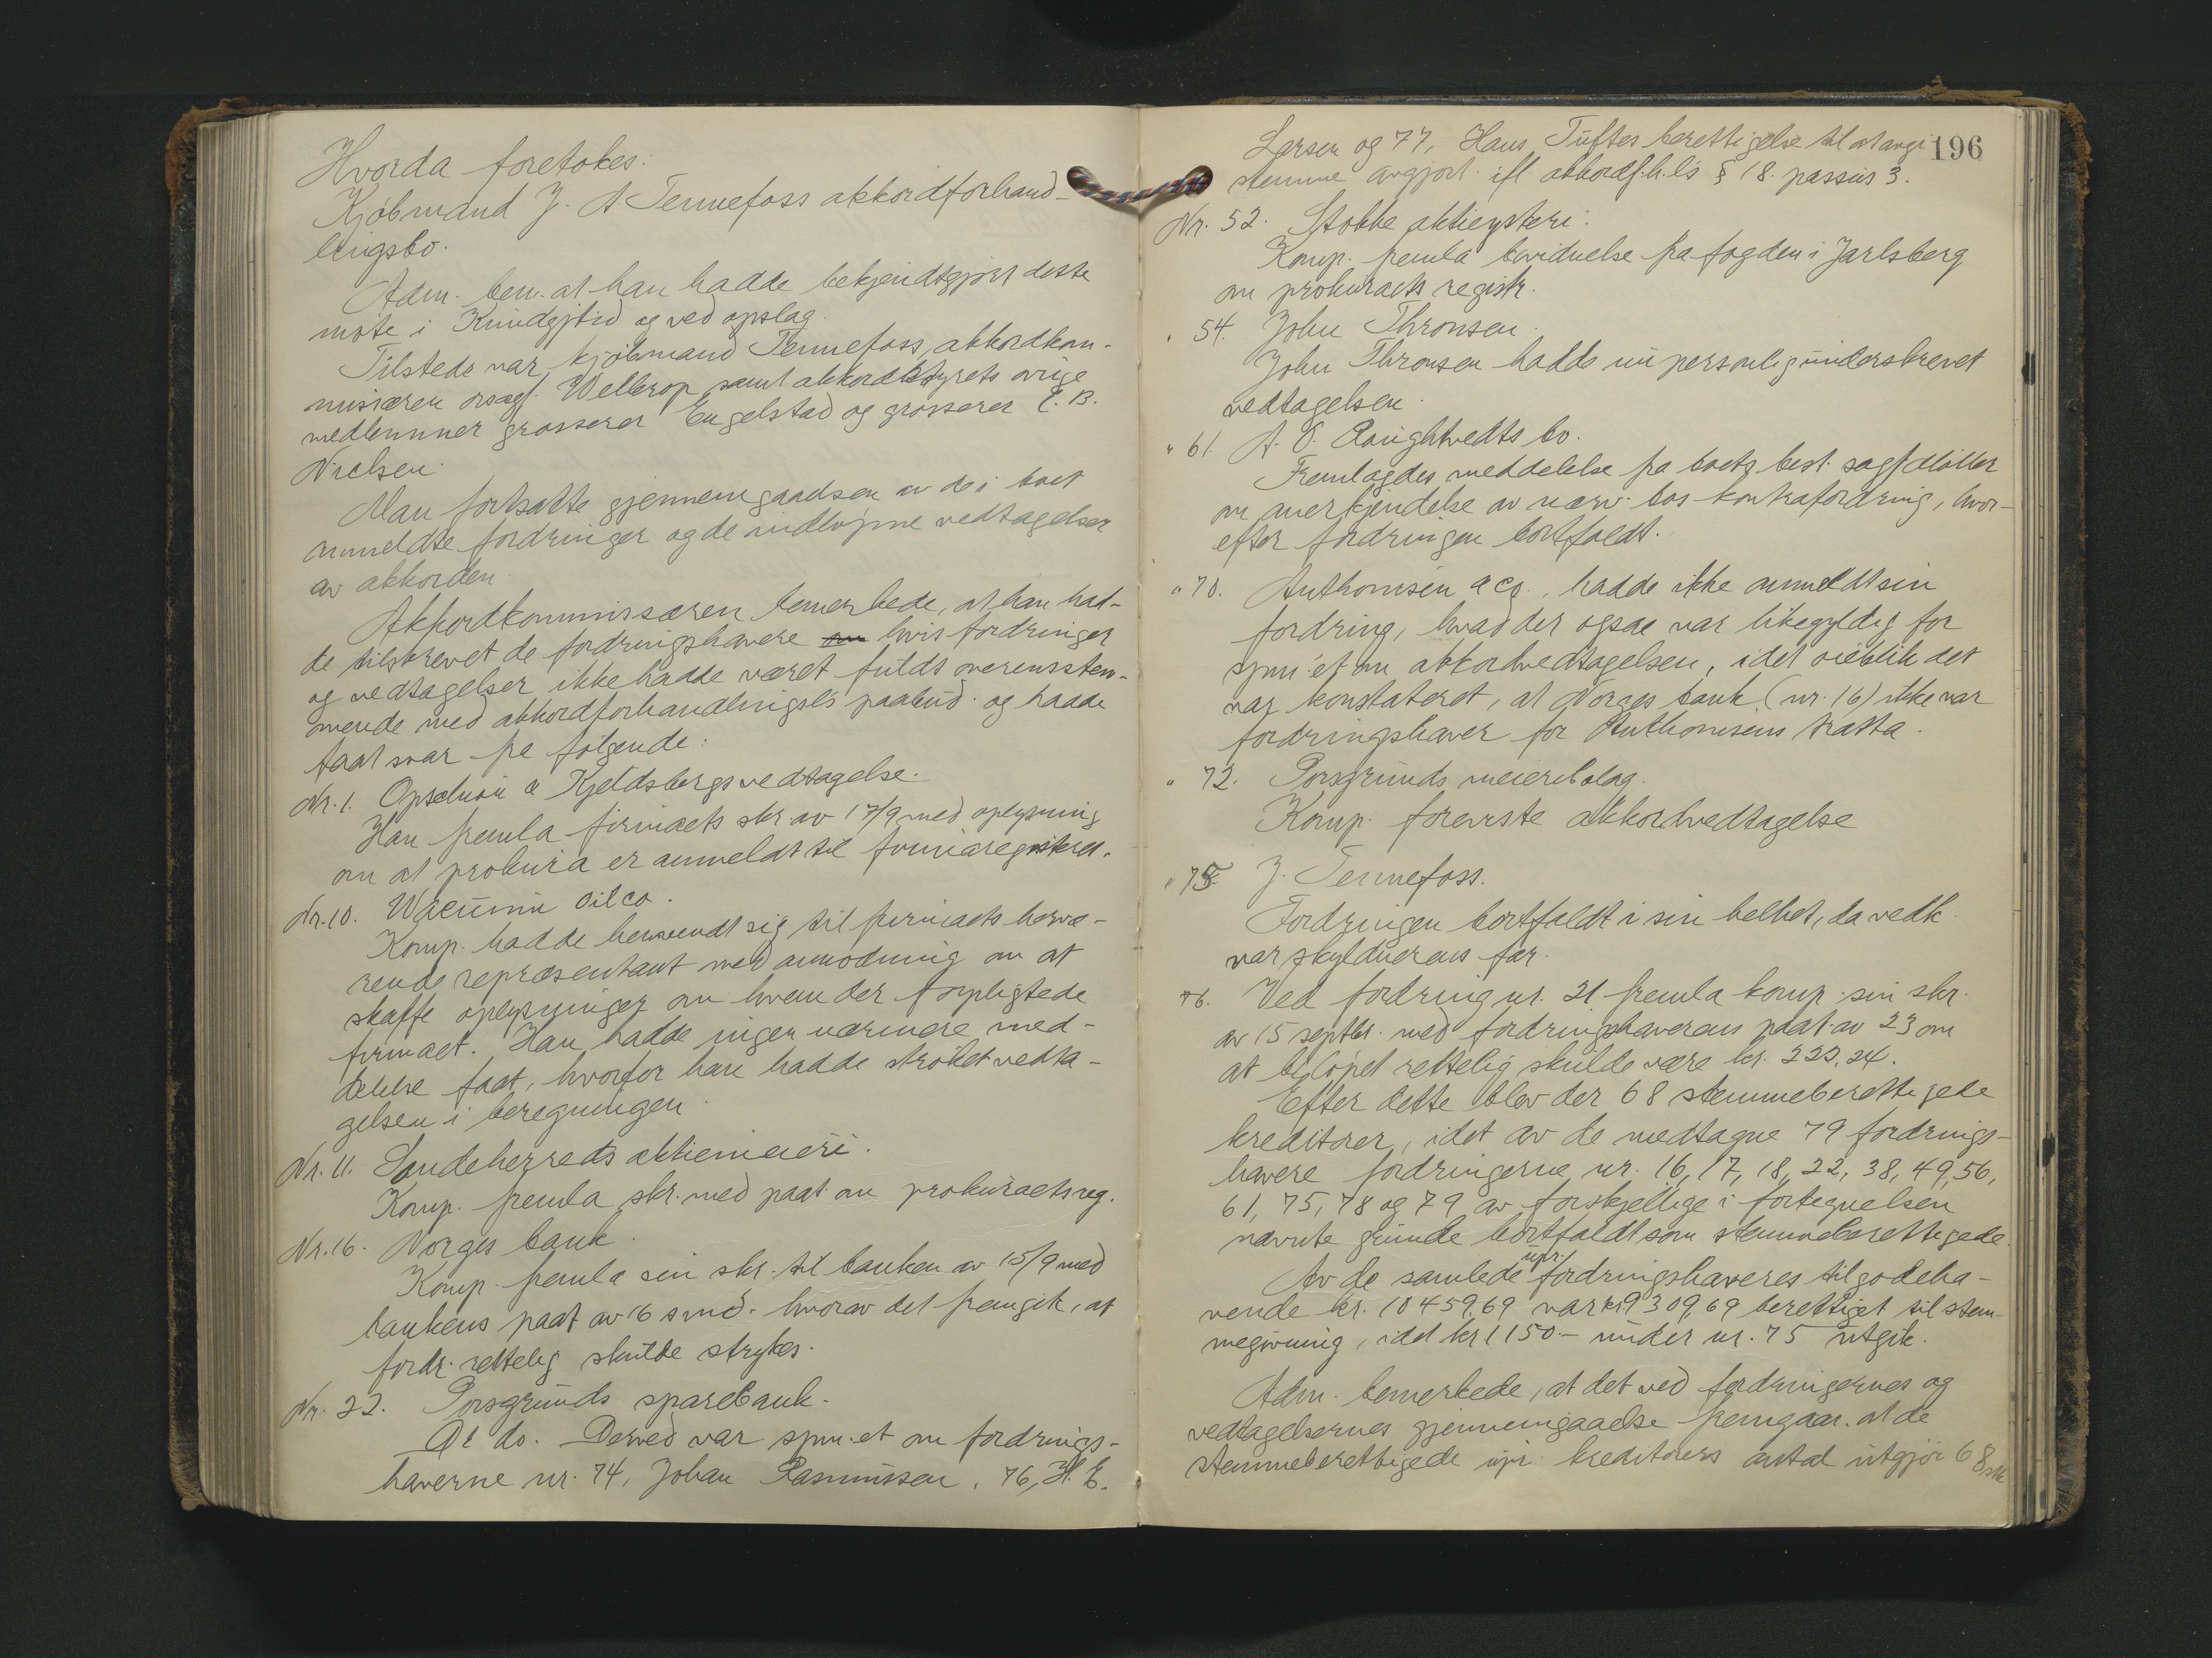 Hvorda foretokes:
Kjöbmand J. A Tennefoss akkordforhand-
lingsbo.
Adm. bem. at han hadde bekjendtgjort dette
möte i Kundgjtid og ved opslag.
Tilstede var kjöbmand Tennefoss, akkordkom-
missæren orsagf. Wellerop samt akkordstyrets övrige
medlemmer grosserer Engelstad og grosserer E. B.
Nielsen.
Man fortsatte gjennemgaadsen av de i boet
anmeldte fordringer og de indløpne vedtagelser
av akkorden
Akkordkommissæren bemerkede, at han had-
de tilskrevet de fordringshavere hvis fordringer
og vedtagelser ikke hadde været fuldt overensstem-
mende med akkordforhandlingsl's paabud. og hadde
faat svar fra følgende:
Nr. 1. & Kjeldsbergs vedtagelse.
Han fremla firmaets skr. av 17/9 med oplysning
om at prokura er anmeldt til firmaregisteret.
Nr. 10. Wacuum Oil co.
Komp. hadde henvendt sig til firmaets herva-
rende repræsentant med anmodning om at
skaffe oplysninger om hvem der forpligtede
firmaet. Han hadde ingen nærmere med-
delelse faat, hvorfor han hadde strøket vedta-
gelsen i beregningen.
Nr. 11. Sandeherreds aktiemeieri.
Komp. fremla skr. med paat. om prokuraets reg.
Nr. 16. Norges bank.
Komp. fremla sin skr. til banken av 15/9 med
bankens paat av 16 s md. hvorav det fremgik, at
fordr. rettelig skulde strykes.
Nr. 22. Porsgrunds sparebank.
Do. Derved var spm.et om fordrings-
haverne nr. 74, Johan Rasmussen, 76, H. E.
196
Larsen og 77, Hans Tuftes berettigelse til at avgi
stemme avgjort ifl. akkordf.h.l's § 18. passus 3.
Nr. 52. Stokke aktieysteri.
Komp. fremla bevidnelse fra fogden i Jarlsberg
om prokuraets registr.
" 54. John Thronsen.
John Thronsen hadde nu personlig underskrevet
vedtagelsen.
" 61. A. O. bo.
Fremlagdes meddelelse fra boets best. sagf Møller
om anerkjendelse av nærv. bos kontrafordring, hvor-
efter fordringen bortfaldt.
" 70. Anthonisen & co., hadde ikke anmeldt sin
fordring, hvad der ogsaa var likegyldig for
spm'et om akkordvedtagelsen, i det øieblik det
var konstateret, at Norges bank (nr. 16) ikke var
fordringshaver for Anthonisens tratta.
" 72. Porsgrunds meieribolag.
Komp. foreviste akkordvedtagelse
" 75 J. Tennefoss.
Fordringen bortfaldt i sin helhet, da vedk.
var skyldnerens far.
76. Ved fordring nr. 21 fremla komp. sin skr.
av 15 septbr. med fordringshaverens paat. av 23 om
at beløpet rettelig skulde være kr. 222,24.
Efter dette blev der 68 stemmeberettigede
kreditorer, idet av de medtagne 79 fordrings-
havere fordringerne nr. 16, 17, 18, 22, 38, 49, 56,
61, 75, 78 og 79 av forskjellige i fortegnelsen
nævnte grunde bortfaldt som stemmeberettigede.
Av de samlede upr. fordringshaveres tilgodeha-
vende kr. 10459,69 var kr 9309,69 berettiget til stem-
megivning, idet kr 1150.- under nr. 75 utgik.
Adm. bemerkede, at det ved fordringernes og
vedtagelsernes gjennemgaaelse fremgaar, at de
stemmeberettigede upr. kreditorers antal utgjør 68 stk